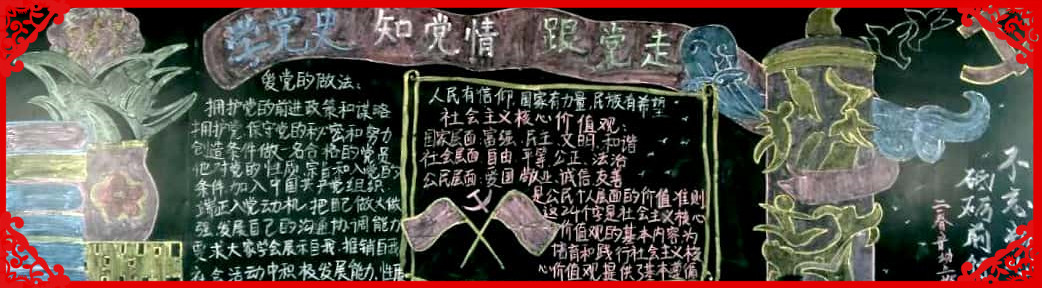 学党史 知党情 跟党走
爱党的做法:
拥护党的前进政策和谋略
拥护党,保守党的秘密和努力
创造条件做一名合格的党员
他对党的性质,宗旨和入党的
条件,加入中国共产党组织
端正入党动机,把自己做大做
强,发展自己的沟通协调能力
要求大家学会展示自我,推销自我
在会活动中积极发展能力,
人民有信仰,国家有力量,民族有希望
社会主义核心价值观:
国家层面:富强,民主,文明,和谐
社会层面 自由,平等,公正,法治
公民层面:爱国,敬业,诚信,友善
是公民个人层面的价值准则
这24个字是社会主义核心
价值观的基本内容为
培育和践行社会主义核
心价值观提供了基本遵循
不忘
砥砺前行